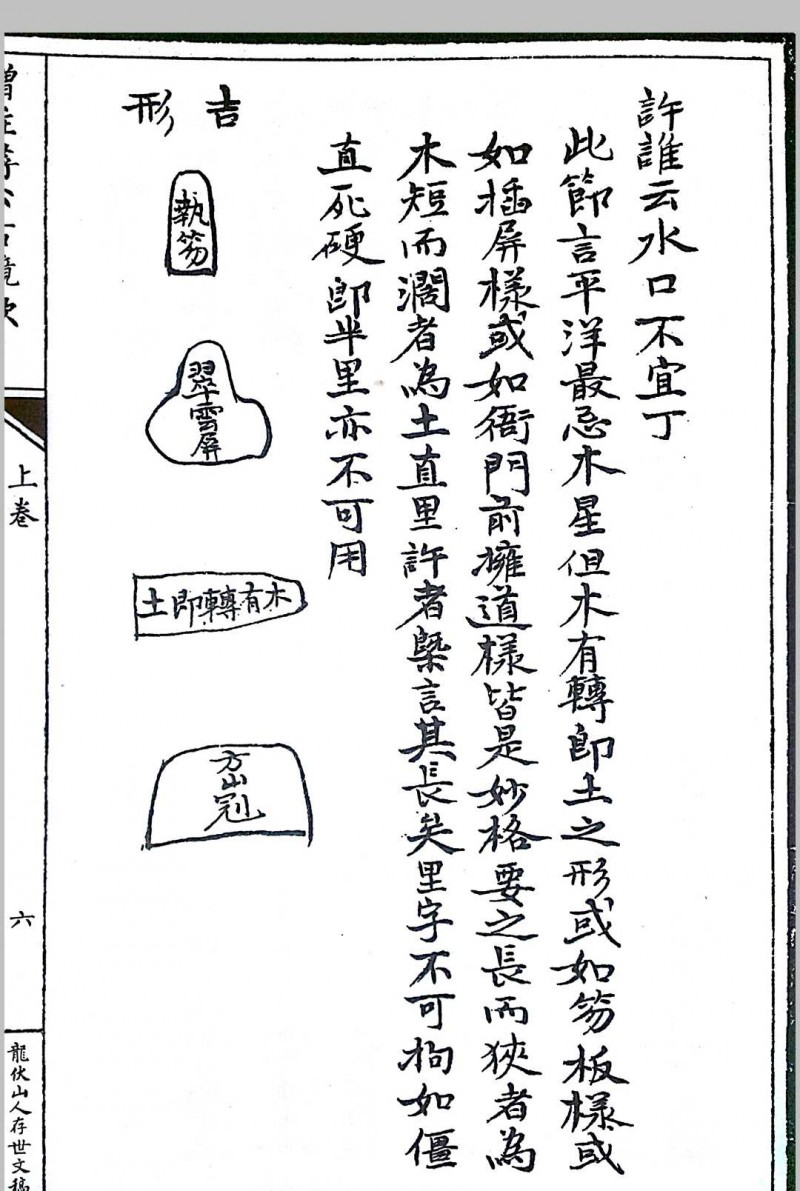 許誰云水口不宜丁
此節言平洋最忌木星但木有轉即土之形或如笏板樣或
如插屏樣或如衙門前擁道樣皆是妙格要之長而狹者為
木短而濶者為土直里許者槩言其長矣里字不可拘如僵
直死硬即半里亦不可用
吉
形
執笏
翠雲屏
木有轉即土
方山冠
上卷
六
龍伏山人存世文稿